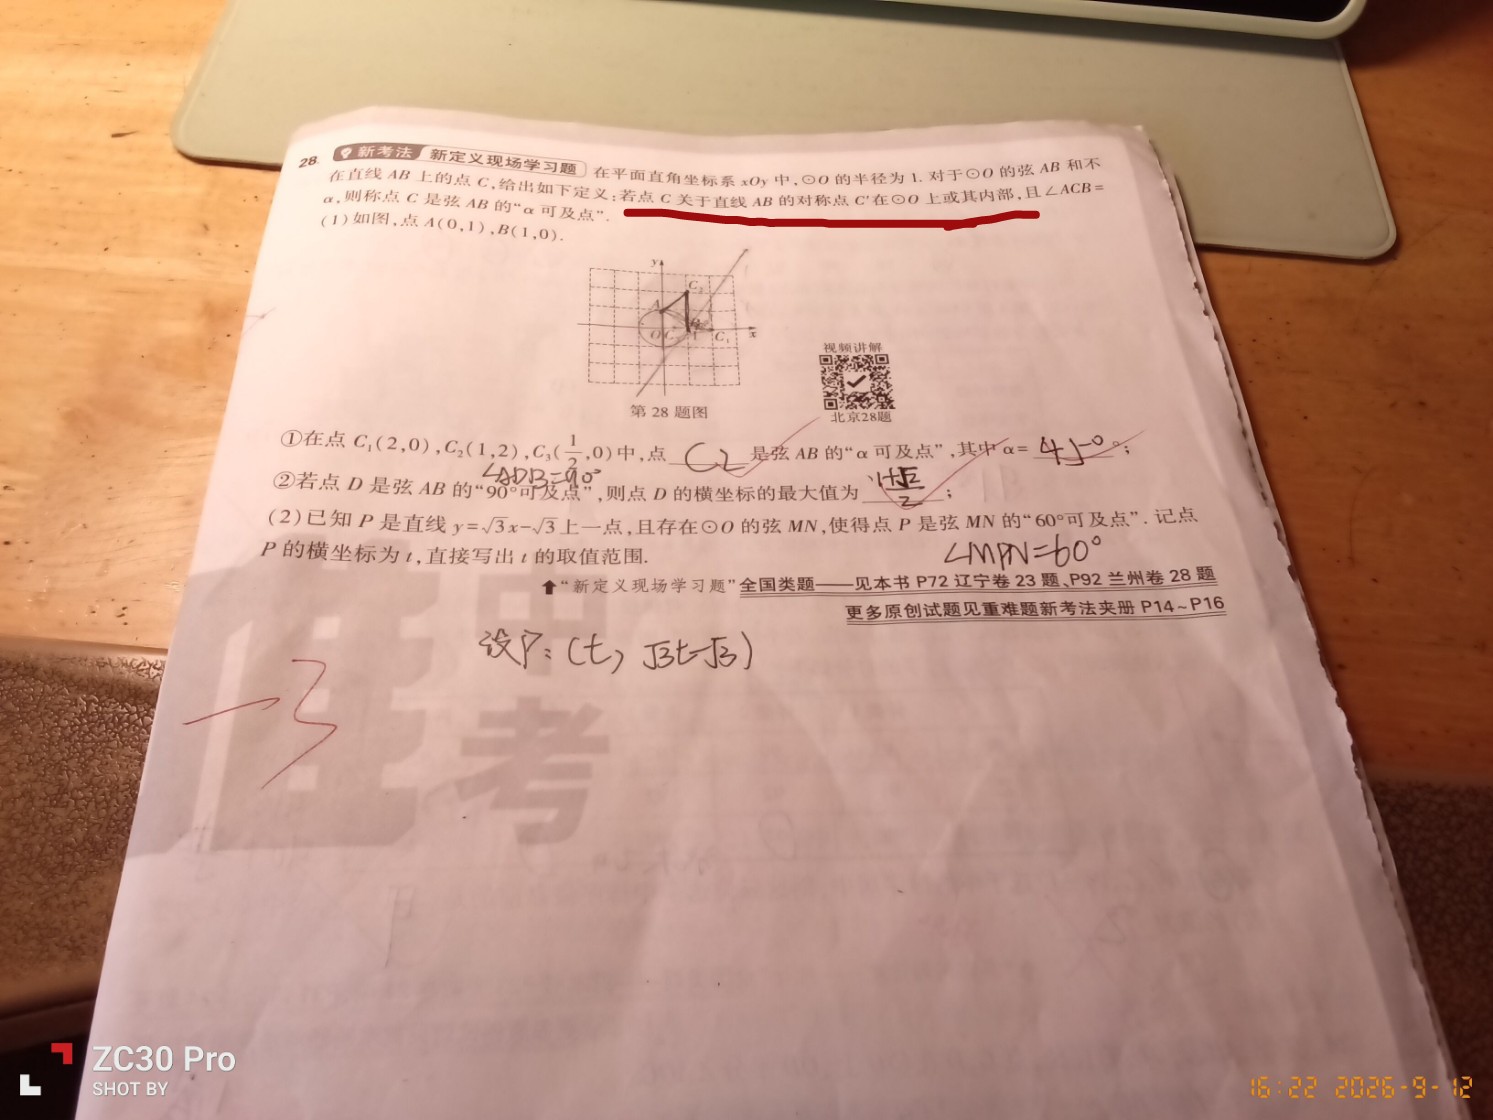 28. 新考法 新定义现场学习题 在平面直角坐标系 xOy 中,⊙O 的半径为 1. 对于⊙O 的弦 AB 和不
在直线 AB 上的点 C,给出如下定义:若点 C 关于直线 AB 的对称点 C′在⊙O 上或其内部,且∠ACB=
α,则称点 C 是弦 AB 的“α 可及点”.
(1)如图,点 A(0,1),B(1,0).
y
C₂
A
B
O
C
1
C₁
x
视频讲解
北京28题
第 28 题图
①在点 C₁(2,0),C₂(1,2),C₃(1/2,0)中,点 C2 是弦 AB 的“α 可及点”,其中 α= 45° °;
∠ADB=90°
②若点 D 是弦 AB 的“90°可及点”,则点 D 的横坐标的最大值为 1+√2/2 ;
(2)已知 P 是直线 y=√3x-√3上一点,且存在⊙O 的弦 MN,使得点 P 是弦 MN 的“60°可及点”. 记点
P 的横坐标为 t,直接写出 t 的取值范围.
∠MPN=60°
⬆“新定义现场学习题”全国类题——见本书 P72 辽宁卷 23 题、P92 兰州卷 28 题
更多原创试题见重难题新考法夹册 P14~P16
设P:(t, √3t-√3)
-3
考
ZC30 Pro
SHOT BY
16:22 2026-9-12